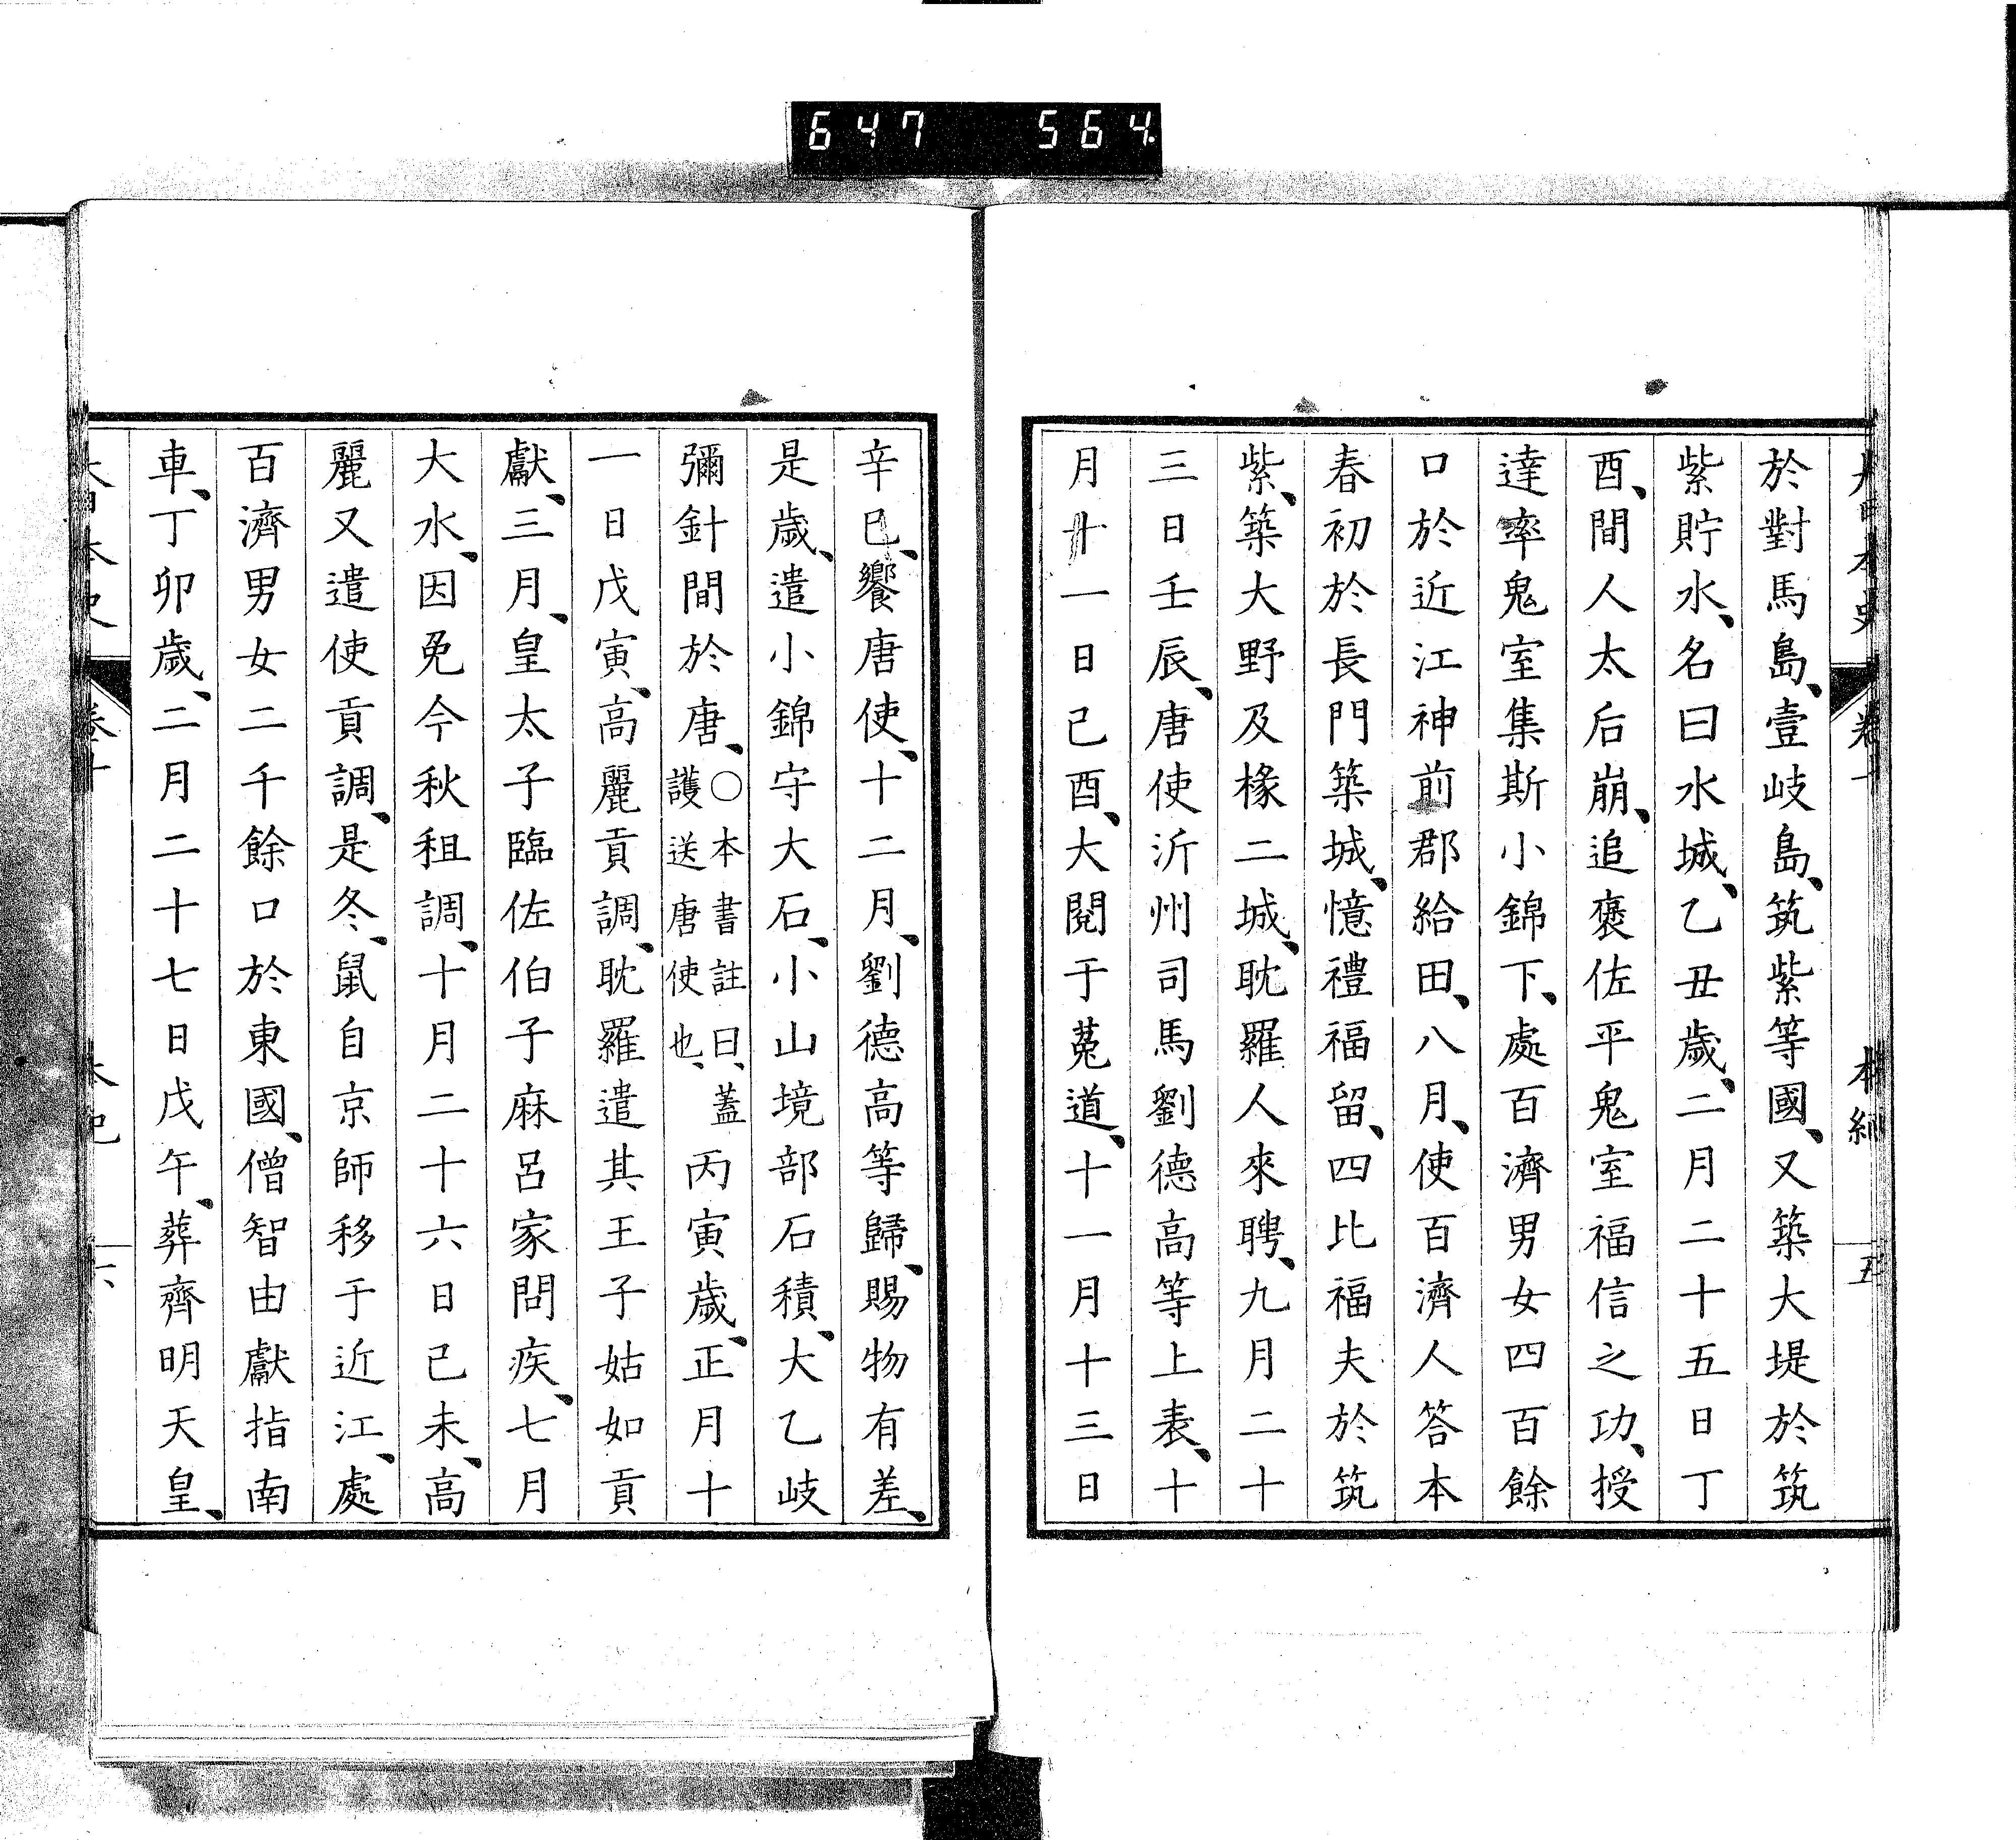 647 564.
大日本史 卷十 本紀 五
於對馬島、壹岐島、筑紫等國、又築大堤於筑
紫貯水、名曰水城、乙丑歲、二月二十五日丁
酉、間人太后崩、追褒佐平鬼室福信之功、授
達率鬼室集斯小錦下、處百濟男女四百餘
口於近江神前郡給田、八月、使百濟人答本
春初於長門築城、憶禮福留、四比福夫於筑
紫、築大野及椽二城、耽羅人來聘、九月二十
三日壬辰、唐使沂州司馬劉德高等上表、十
月廿一日己酉、大閱于菟道、十一月十三日
辛巳、饗唐使、十二月、劉德高等歸、賜物有差、
是歲、遣小錦守大石、小山境部石積、大乙岐
彌針間於唐、○本書註曰、蓋護送唐使也、丙寅歲、正月十
一日戊寅、高麗貢調、耽羅遣其王子姑如貢
獻、三月、皇太子臨佐伯子麻呂家問疾、七月
大水、因免今秋租調、十月二十六日己未、高
麗又遣使貢調、是冬、鼠自京師移于近江、處
百濟男女二千餘口於東國、僧智由獻指南
車、丁卯歲、二月二十七日戊午、葬齊明天皇、
大日本史 卷十 本紀 六